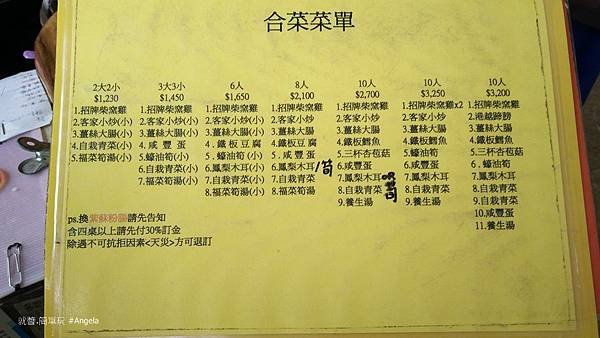 合菜菜單
2大2小
$1,230
1.招牌柴窯雞
2.客家小炒(小)
3.薑絲大腸(小)
4.自栽青菜(小)
5.福菜筍湯(小)
3大3小
$1,450
1.招牌柴窯雞
2.客家小炒(小)
3.薑絲大腸(小)
4.咸豐蛋
5.蠔油筍(小)
6.自栽青菜(小)
7.福菜筍湯(小)
6人
$1,650
1.招牌柴窯雞
2.客家小炒(小)
3.薑絲大腸(小)
4.鐵板豆腐
5.蠔油筍(小)
6.鳳梨木耳(小)
7.自栽青菜(小)
8.福菜筍湯(小)
8人
$2,100
1.招牌柴窯雞
2.客家小炒
3.薑絲大腸
4.鐵板豆腐
5.咸豐蛋
6.鳳梨木耳/筍
7.自栽青菜
8.福菜筍湯
10人
$2,700
1.招牌柴窯雞
2.客家小炒
3.薑絲大腸
4.鐵板鱈魚
5.三杯杏苞菇
6.咸豐蛋
7.鳳梨木耳
8.自栽青菜
9.養生湯
10人
$3,250
1.招牌柴窯雞x2
2.客家小炒
3.薑絲大腸
4.鐵板鱈魚
5.蠔油筍
6.咸豐蛋
7.鳳梨木耳
8.自栽青菜
9.養生湯
10人
$3,200
1.招牌柴窯雞
2.港越蹄膀
3.薑絲大腸
4.鐵板鱈魚
5.三杯杏苞菇
6.蠔油筍
7.鳳梨木耳
8.客家小炒
9.自栽青菜
10.咸豐蛋
11.養生湯
ps.換紫蘇粉腸請先告知
含四桌以上請先付30%訂金
除遇不可抗拒因素<天災>方可退訂
就醬.簡單玩 #Angela